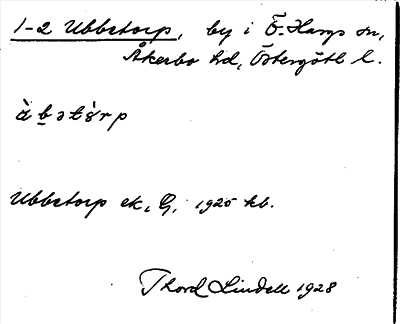 1-2 Ubbetorp, by i Ö. Hargs sn,
Åkerbo hd, Östergötl l.
Ubbetorp ek, G, 1925 kb.
Thord Lindell 1928